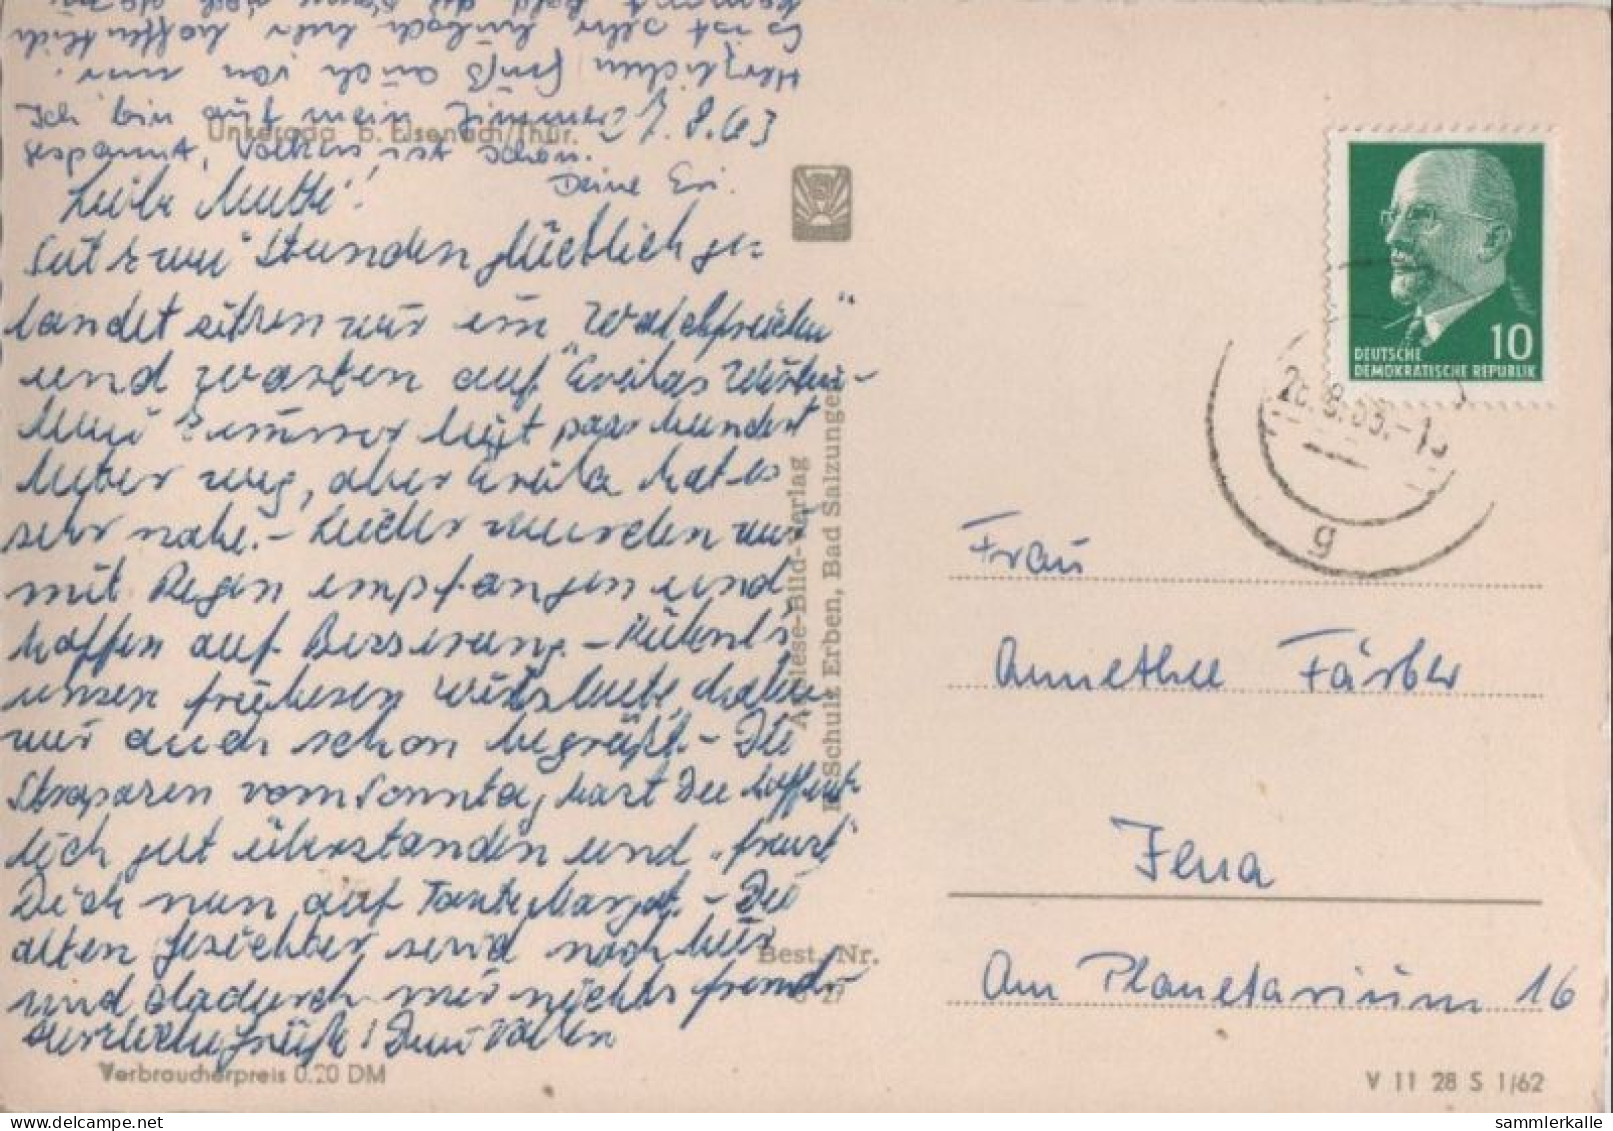 Herzlichen Gruß auch von mir.
Es ist sehr hübsch hier hoffentlich
kommst bald
Ich bin auf mein Zimmer 27.8.63
gespannt, Volkers ist schön.
Deine Evi.
Unkeroda b. Eisenach/Thür.
Liebe Mutti!
Seit zwei Stunden glücklich ge-
landet sitzen wir im "Waldfrieden"
und warten auf Wirtin.
Zimmer liegt paar hundert
Meter weg, aber hat es
sehr nahe. - Leider wurden wir
mit Regen empfangen und
hoffen auf Besserung. -
unsere früheren Wirtsleute, haben
wir auch schon begrüßt. - Die
Strapazen vom Sonntag hast Du hoffent-
lich gut überstanden und "freust"
Dich nun auf Tante Margot. - Die
alten Gesichter sind noch hier
und dadurch mir nichts fremd.
Herzliche Grüße! Dein Volker
Verbraucherpreis 0.20 DM
Auslese-Bild-Verlag
R. Schulz Erben, Bad Salzungen
Best.-Nr.
27
10
DEUTSCHE
DEMOKRATISCHE REPUBLIK
g
Frau
Annethee Färber
Jena
Am Planetarium 16
V 11 28 S 1/62
sammlerkalle